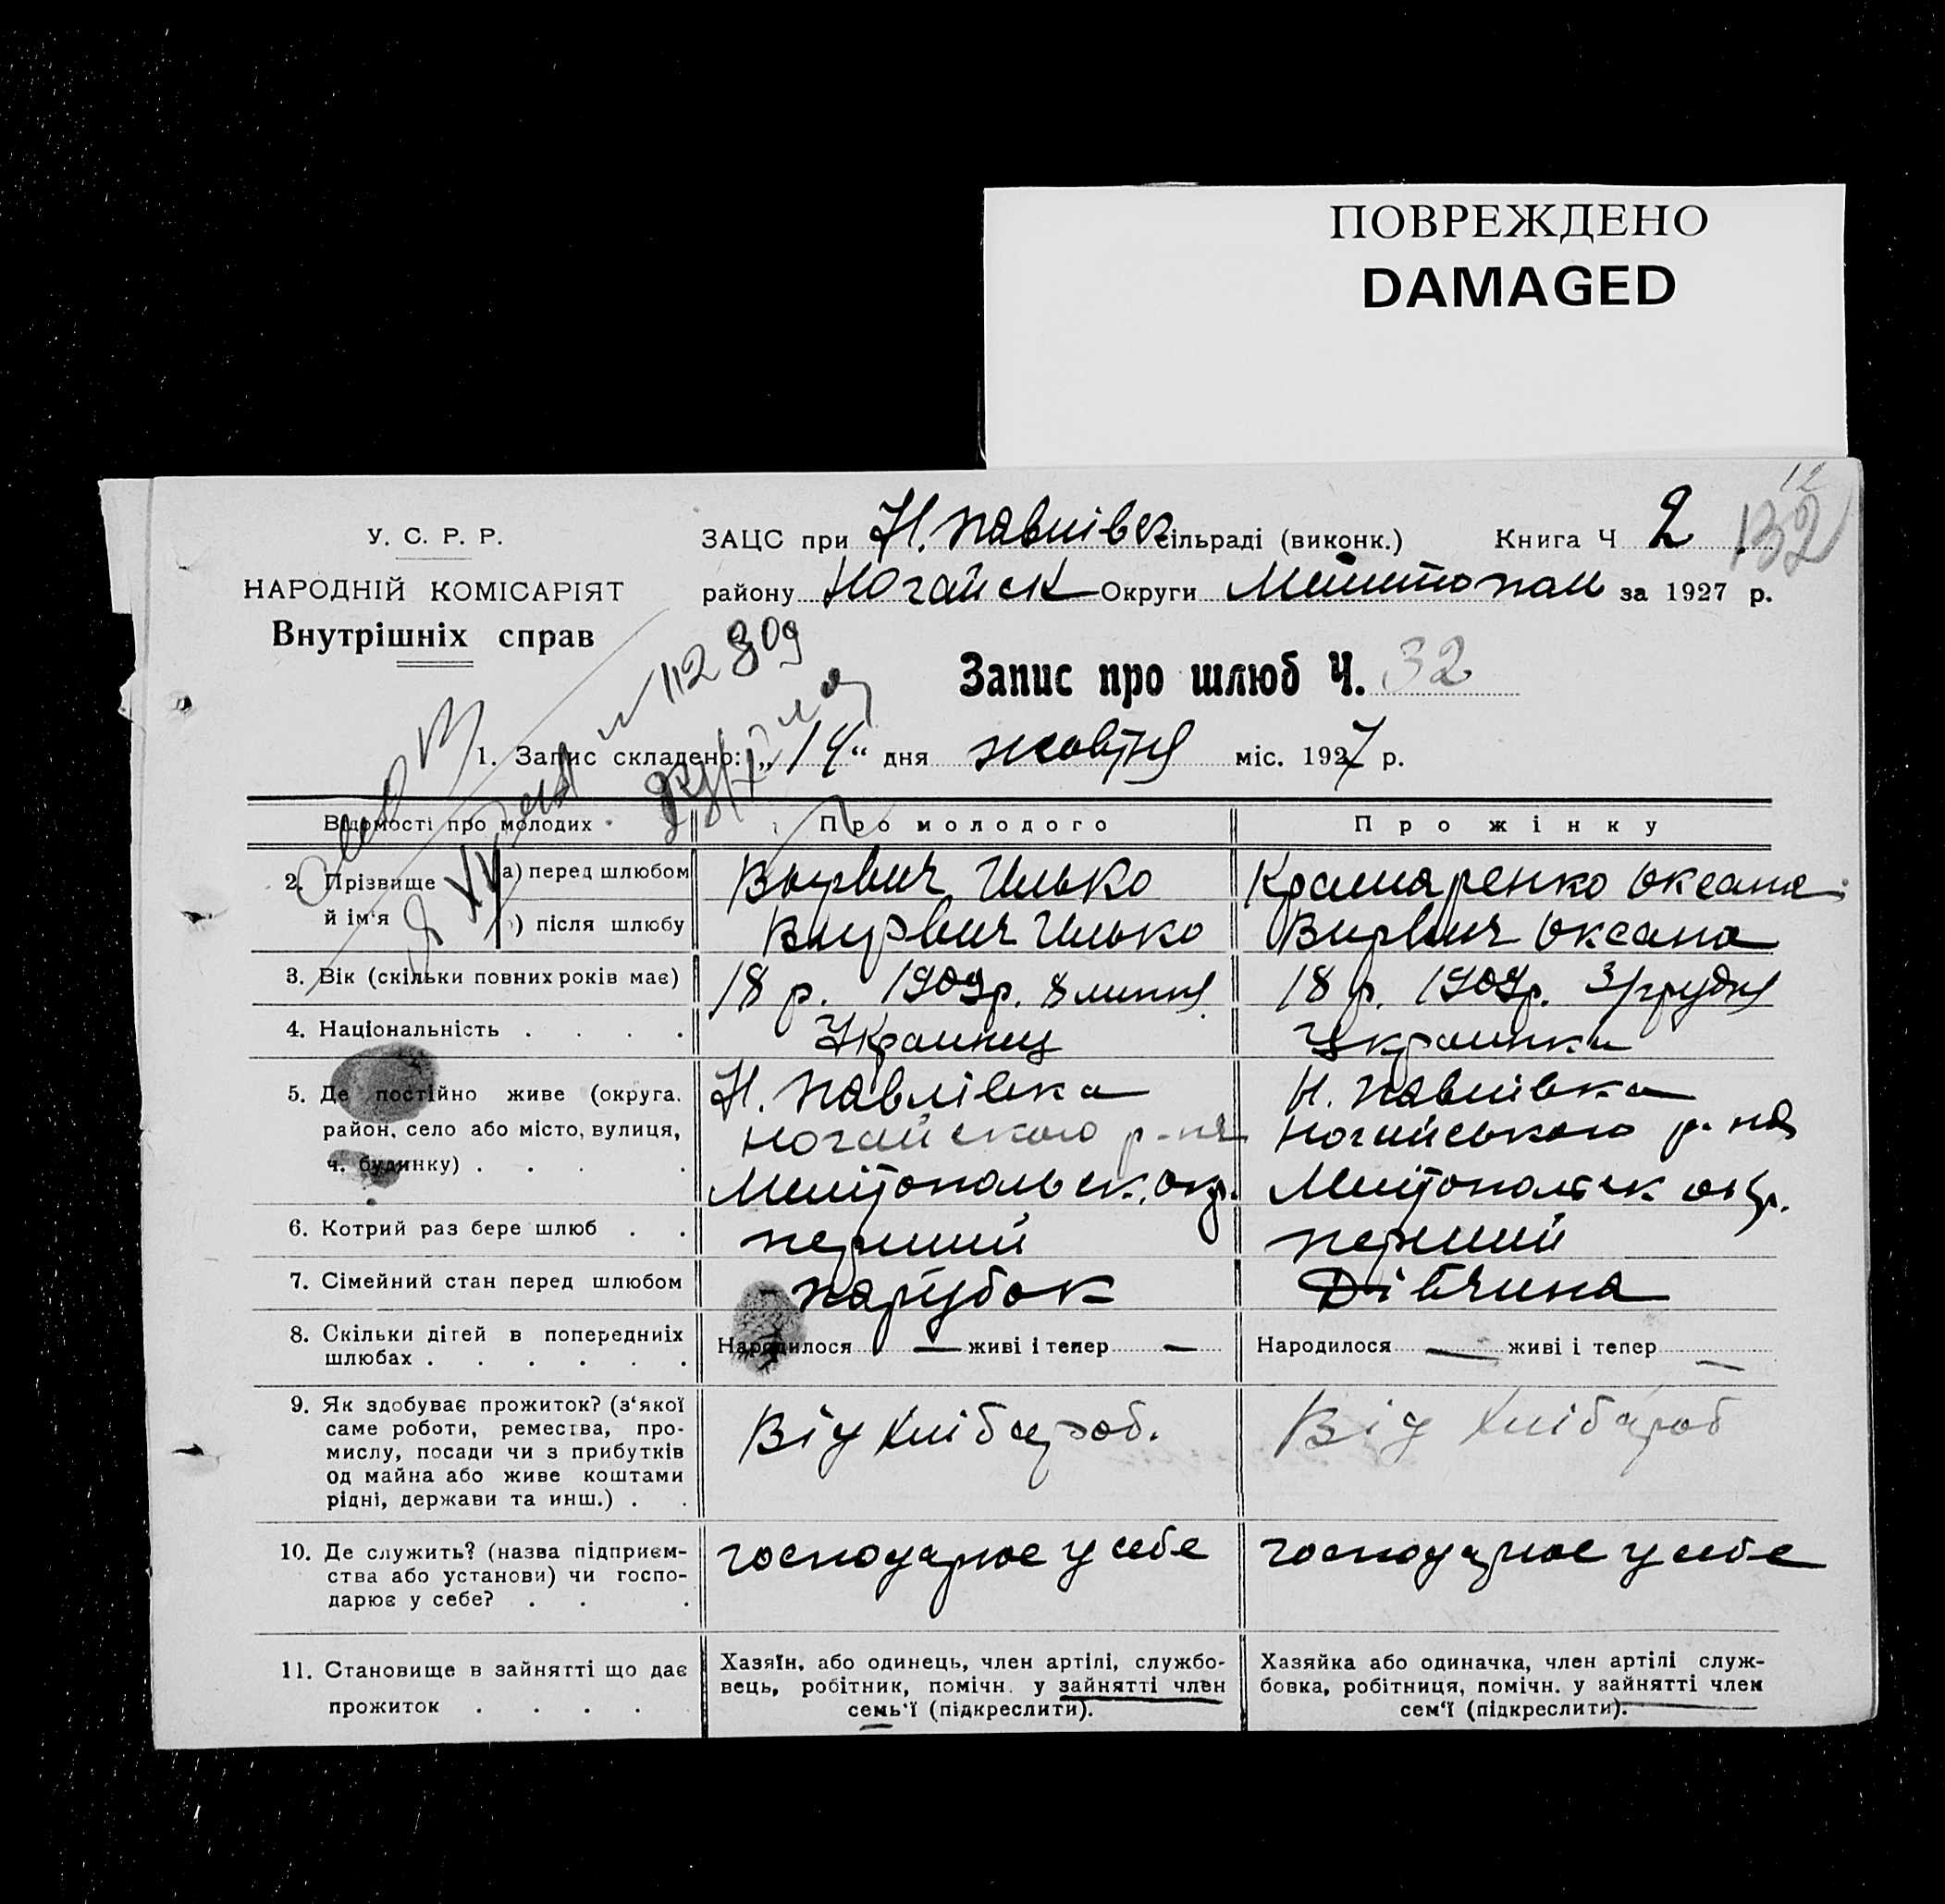 ПОВРЕЖДЕНО
DAMAGED
12
132
У. С. Р. Р.
НАРОДНІЙ КОМІСАРІЯТ
Внутрішніх справ
ЗАЦС при Н. Павлівск сільраді (виконк.) Книга Ч 2
району Ногайськ Округи Мелитопол за 1927 р.
112809
Запис про шлюб Ч. 32
1. Запис складено: „14“ дня жовтня міс. 1927 р.
Відомості про молодих Про молодого Про жінку
2. Прізвище й ім'я
а) перед шлюбом Вырвич Илько Крамаренко Оксана
) після шлюбу Вирвич Илько Вирвич Оксана
3. Вік (скільки повних років має) 18 р. 1909р. 8 липня 18 р. 1909р. 3/грудня
4. Національність Украинец Украинка
5. Де постійно живе (округа, Н. Павлівка Н. Павлівка
район, село або місто, вулиця, Ногайского р-на Ногайського р-на
ч. будинку) Мелітопольск. окр. Мелітопольск окр.
6. Котрий раз бере шлюб перший перший
7. Сімейний стан перед шлюбом парубок Дівчина
8. Скільки дітей в попередніх Народилося — живі і тепер — Народилося — живі і тепер —
шлюбах
9. Як здобуває прожиток? (з'якої
саме роботи, ремества, про- Від хлібароб. Від хлібароб
мислу, посади чи з прибутків
од майна або живе коштами
рідні, держави та инш.)
10. Де служить? (назва підприєм- господарює у себе господарює у себе
ства або установи) чи госпо-
дарює у себе?
11. Становище в зайнятті що дає Хазяїн, або одинець, член артілі, службо- Хазяйка або одиначка, член артілі служ-
прожиток вець, робітник, помічн. у зайнятті член бовка, робітниця, помічн. у зайнятті член
семь'ї (підкреслити). сем'ї (підкреслити).